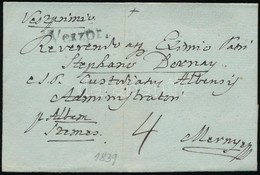 Veszprim
Veszpr.
Reverendo ac Eximio Patri
Stephano Dornay
Custoriatus Albensis
Administratori
p Albam
Szemes
4
Mernye
1839